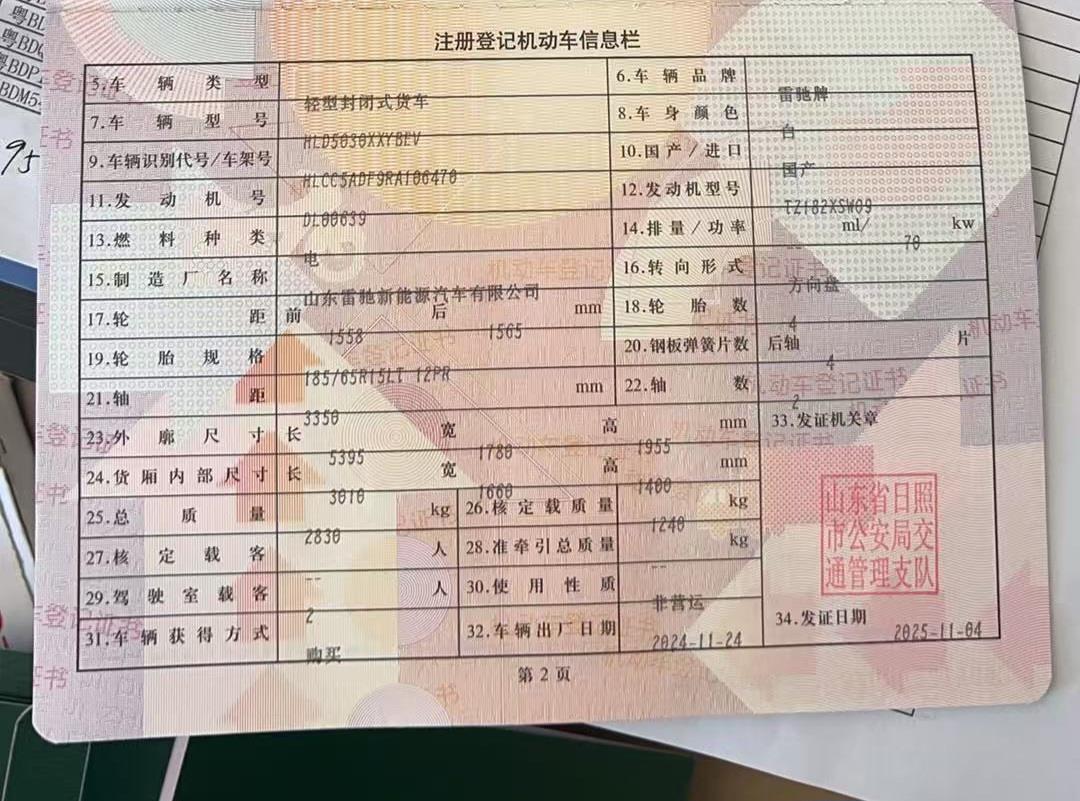 粤BD
95
注册登记机动车信息栏
5.车辆类型 轻型封闭式货车 6.车辆品牌 雷驰牌
7.车辆型号 HLD5030XXYBEV 8.车身颜色 白
9.车辆识别代号/车架号 HLCC5ADF9RA106470 10.国产/进口 国产
11.发动机号 DL00639 12.发动机型号 TZ182XSW09
13.燃料种类 电 14.排量/功率 -- ml/ 70 kw
15.制造厂名称 山东雷驰新能源汽车有限公司 16.转向形式 方向盘
17.轮距 前 1558 后 1565 mm 18.轮胎数 4
19.轮胎规格 185/65R15LT 12PR 20.钢板弹簧片数 后轴 4 片
21.轴距 3350 mm 22.轴数 2
23.外廓尺寸 长 5395 宽 1780 高 1955 mm 33.发证机关章
24.货厢内部尺寸 长 3010 宽 1660 高 1400 mm
25.总质量 2830 kg 26.核定载质量 1240 kg
27.核定载客 -- 人 28.准牵引总质量 -- kg
山东省日照
市公安局交
通管理支队
29.驾驶室载客 2 人 30.使用性质 非营运
31.车辆获得方式 购买 32.车辆出厂日期 2024-11-24 34.发证日期 2025-11-04
第2页